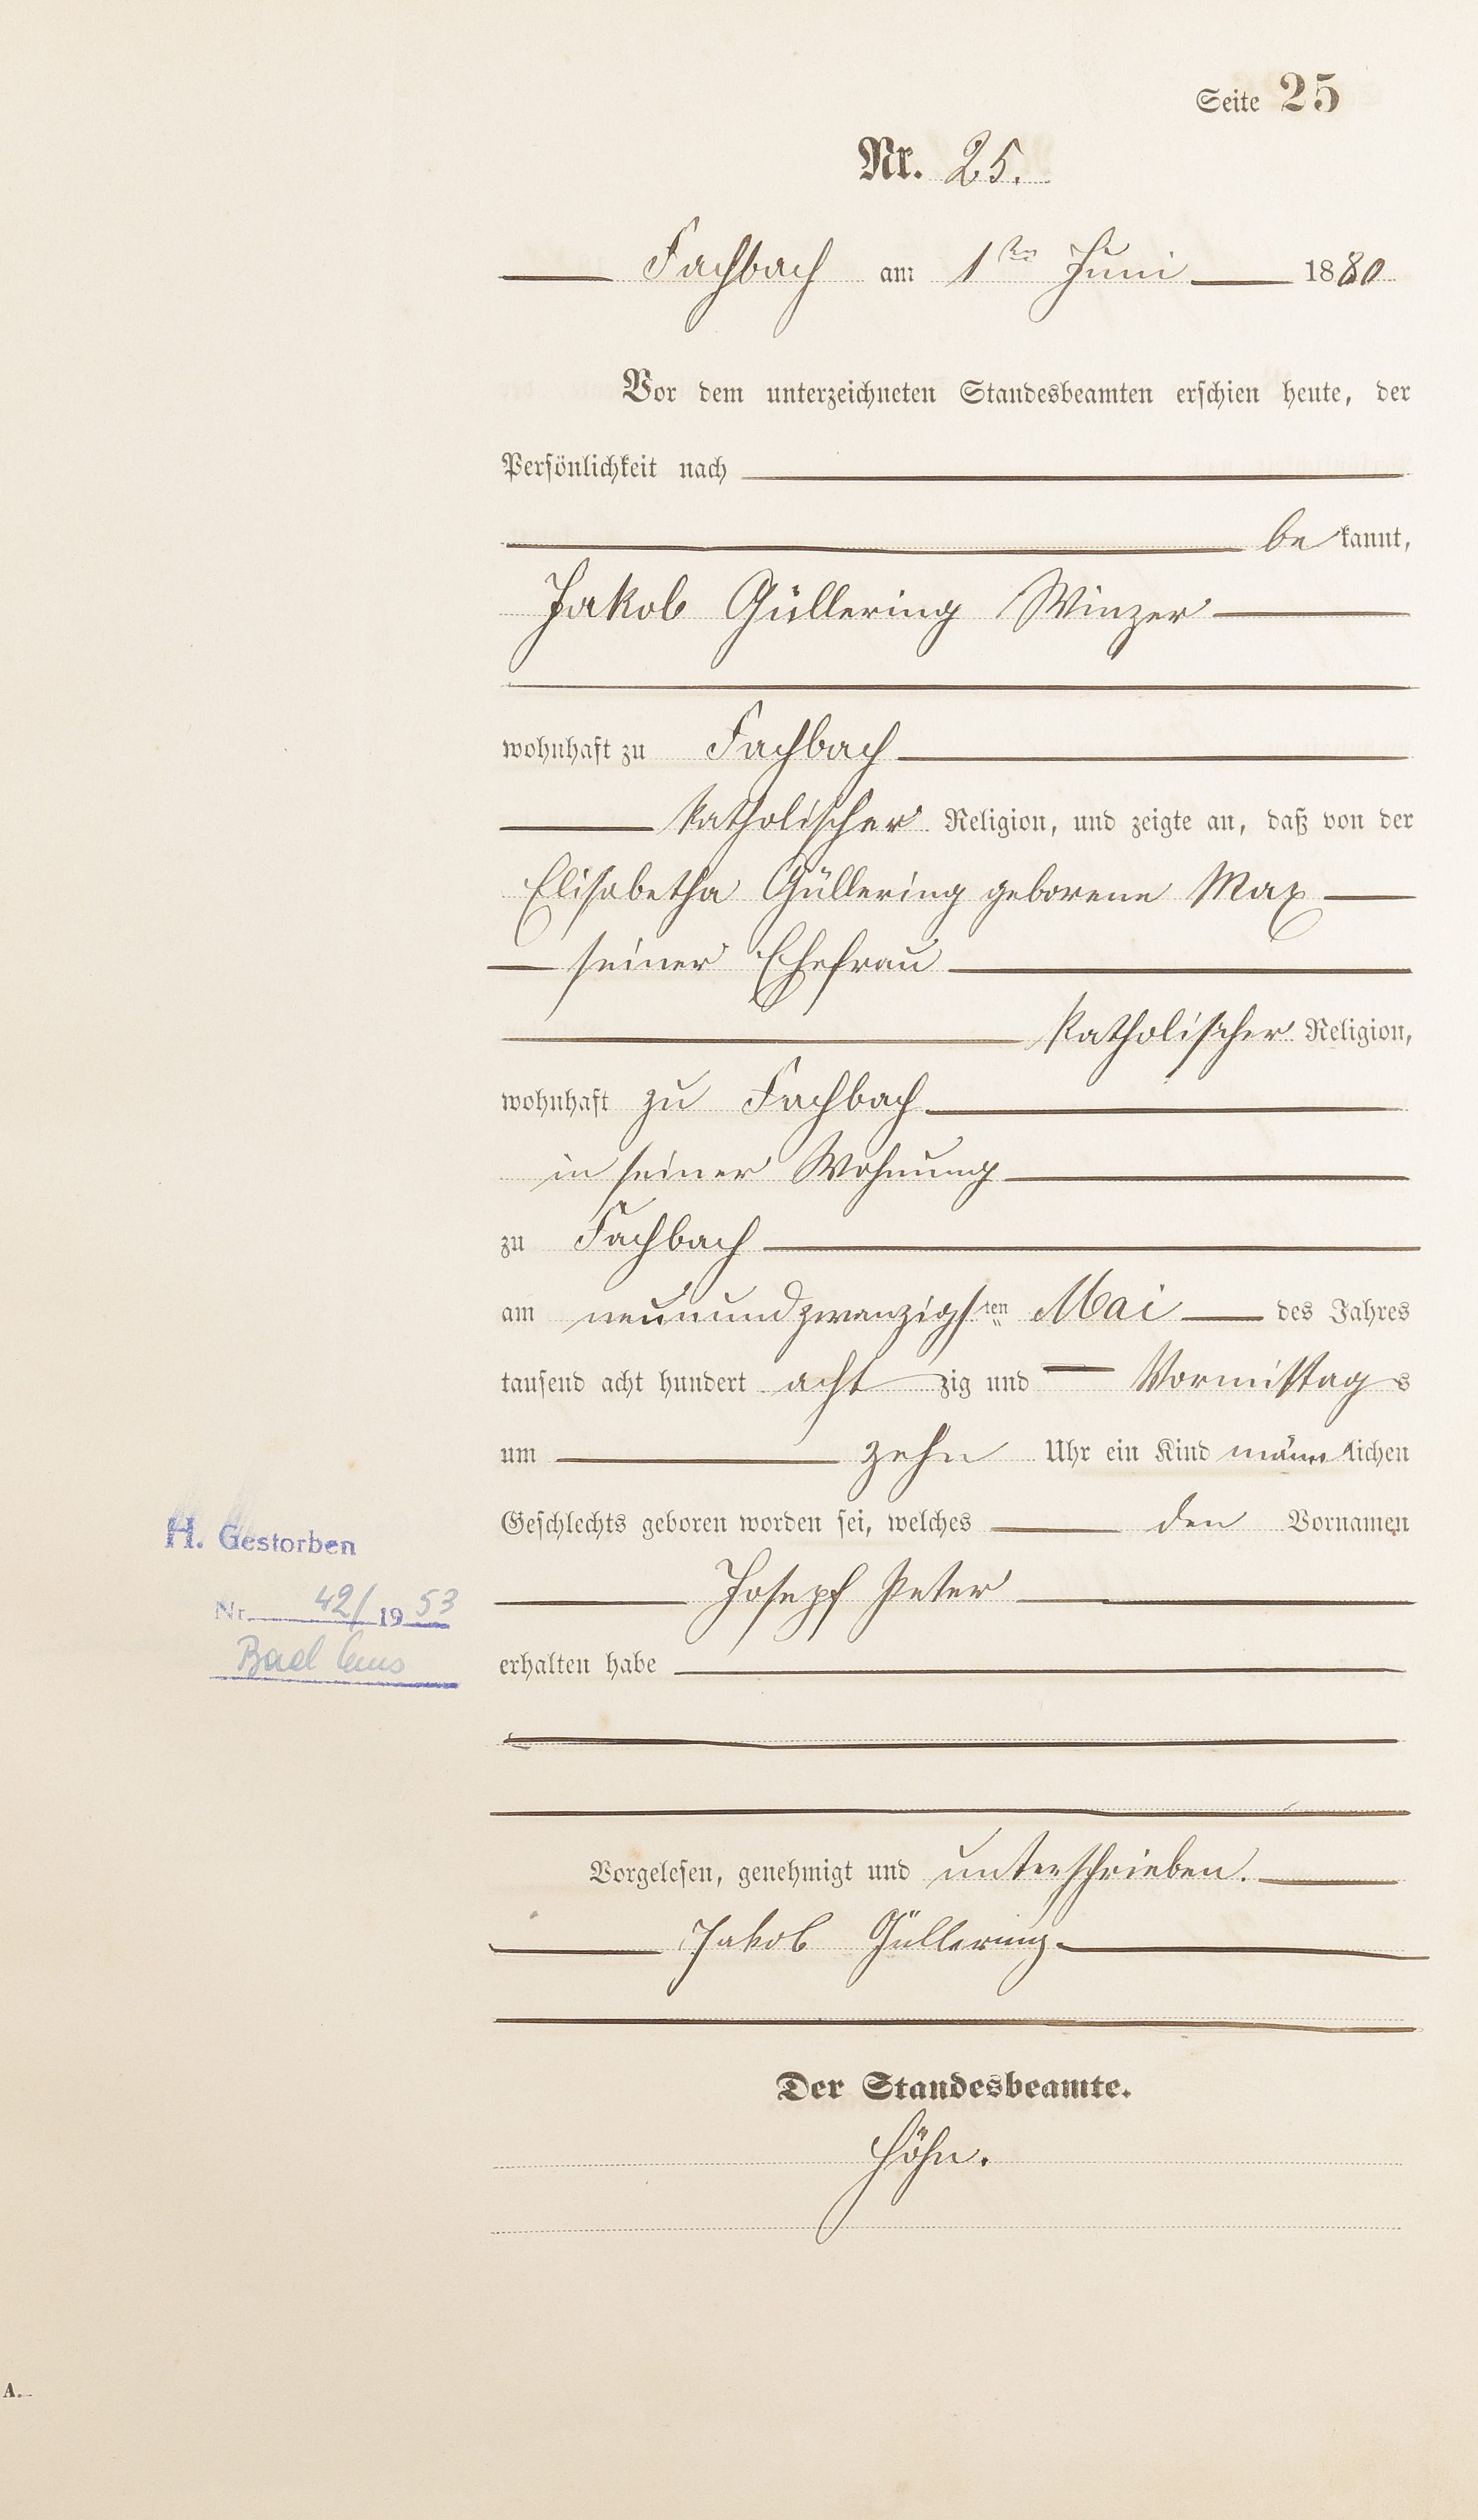 Seite 25
Nr. 25.
Fachbach am 1ten Juni 1880
Vor dem unterzeichneten Standesbeamten erschien heute, der
Persönlichkeit nach
be kannt,
Jakob Güllering Winzer
wohnhaft zu Fachbach
katholischer Religion, und zeigte an, daß von der
Elisabetha Güllering geborene Max
seiner Ehefrau
katholischer Religion,
wohnhaft zu Fachbach
in seiner Wohnung
zu Fachbach
am neunundzwanzigsten Mai des Jahres
tausend acht hundert achtzig und Vormittags
um zehn Uhr ein Kind männlichen
Geschlechts geboren worden sei, welches den Vornamen
Josepf Peter
erhalten habe
H. Gestorben
Nr. 42/1953
Bad Ems
Vorgelesen, genehmigt und unterschrieben.
Jakob Güllering
Der Standesbeamte.
Höhn.
A.